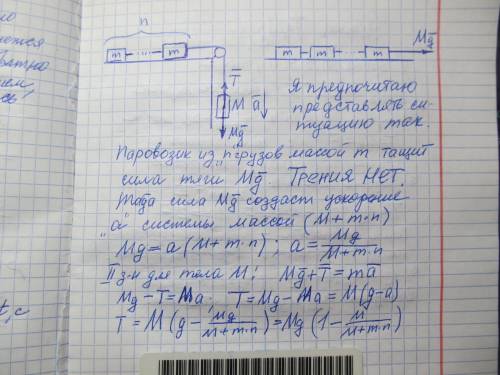 n
m ---- m
T̅
M a̅
Mg̅
m m --- m Mg̅
Я предпочитаю
представлять си-
туацию так.
Паровозик из "n" грузов массой m тащит
сила тяги Mg̅. Трения НЕТ.
Тогда сила Mg̅ создаст ускорение
"a" системы массой (M+m·n)
Mg=a(M+m·n); a=Mg/(M+m·n)
II з-н для тела M: Mg̅+T̅=ma̅
Mg-T=Ma; T=Mg-Ma=M(g-a)
T=M(g-Mg/(M+m·n))=Mg(1-M/(M+m·n))